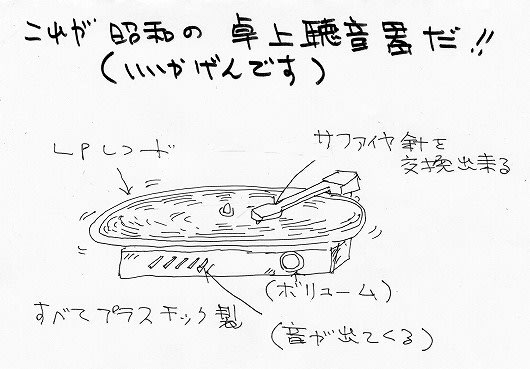 これが昭和の卓上聴音器だ!!
(いいかげんです)
サファイヤ針を
交換出来る
LPレコード
(ボリューム)
すべてプラスチック製
(音が出てくる)